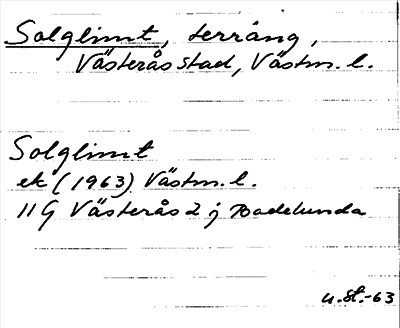 Solglimt, terräng,
Västerås stad, Västm. l.
Solglimt
ek (1963) Västm. l.
11 G Västerås 2 j Badelunda
u. St.-63